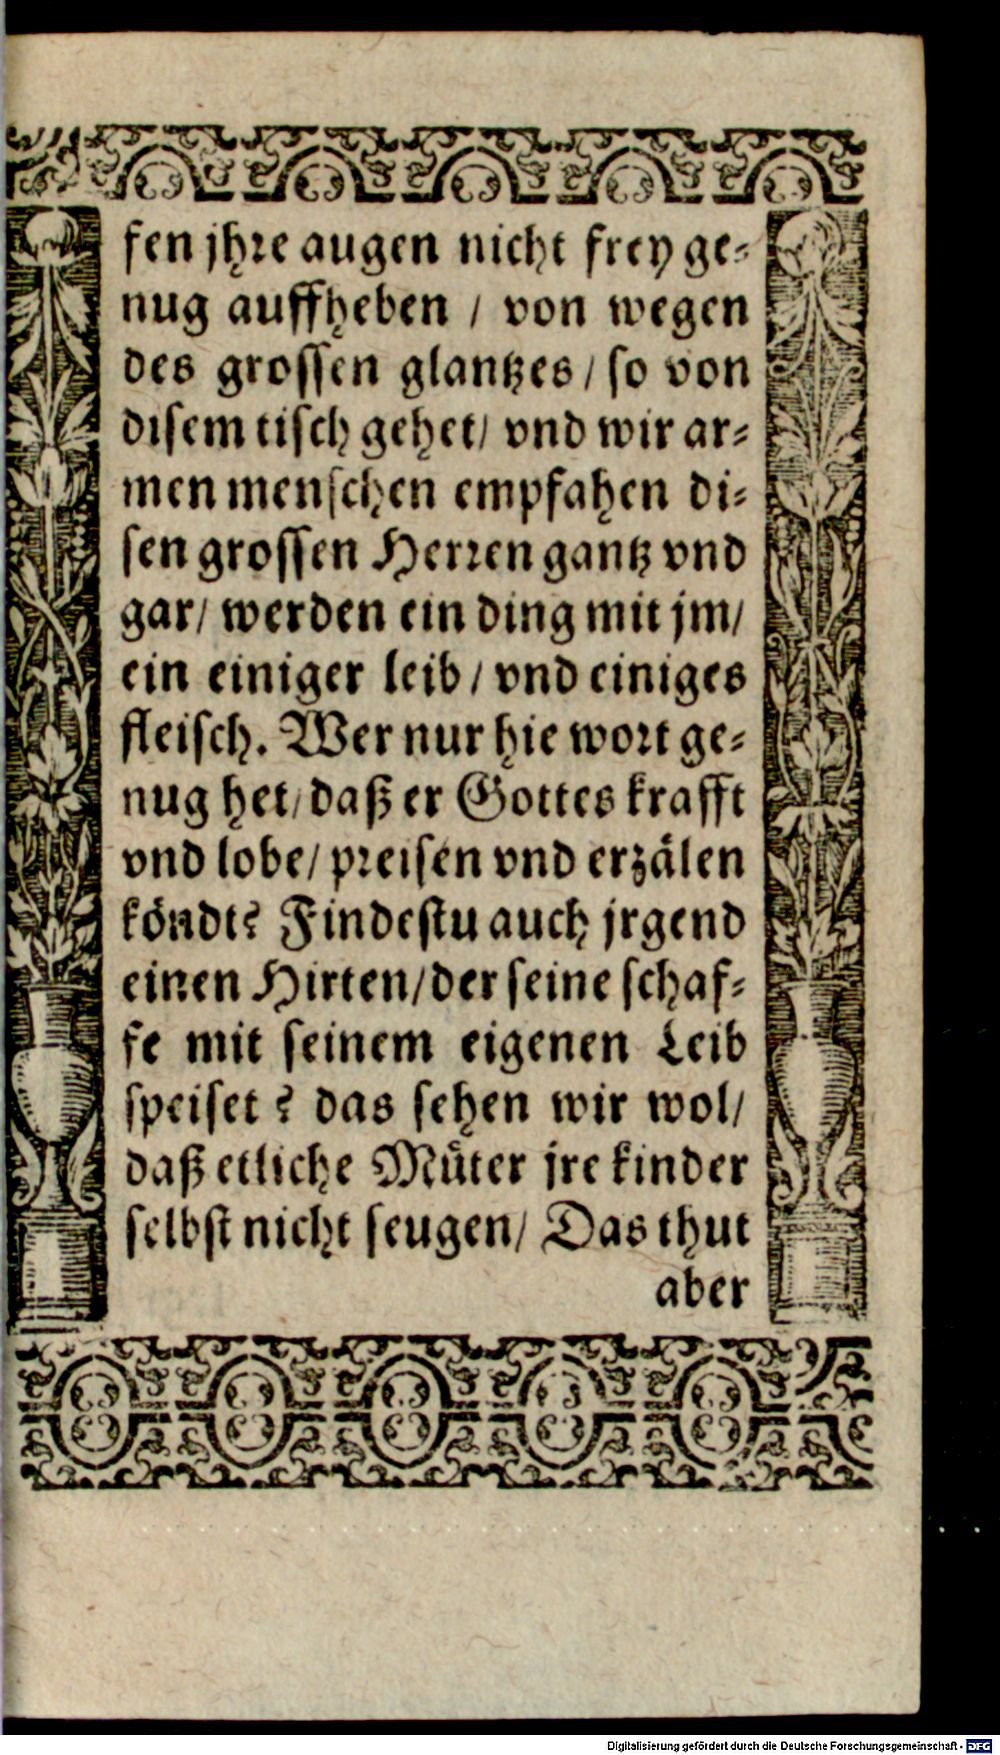 fen jhre augen nicht frey ge⸗
nug auffheben / von wegen
des grossen glantzes / so von
disem tisch gehet / vnd wir ar⸗
men menschen empfahen di⸗
sen grossen Herren gantz vnd
gar / werden ein ding mit jm /
ein einiger leib / vnd einiges
fleisch. Wer nur hie wort ge⸗
nug het / daß er Gottes krafft
vnd lobe / preisen vnd erzälen
köndt? Findestu auch jrgend
einen Hirten / der seine schaf⸗
fe mit seinem eigenen Leib
speiset? das sehen wir wol /
daß etliche Müter jre kinder
selbst nicht seugen / Das thut
aber
Digitalisierung gefördert durch die Deutsche Forschungsgemeinschaft - DFG